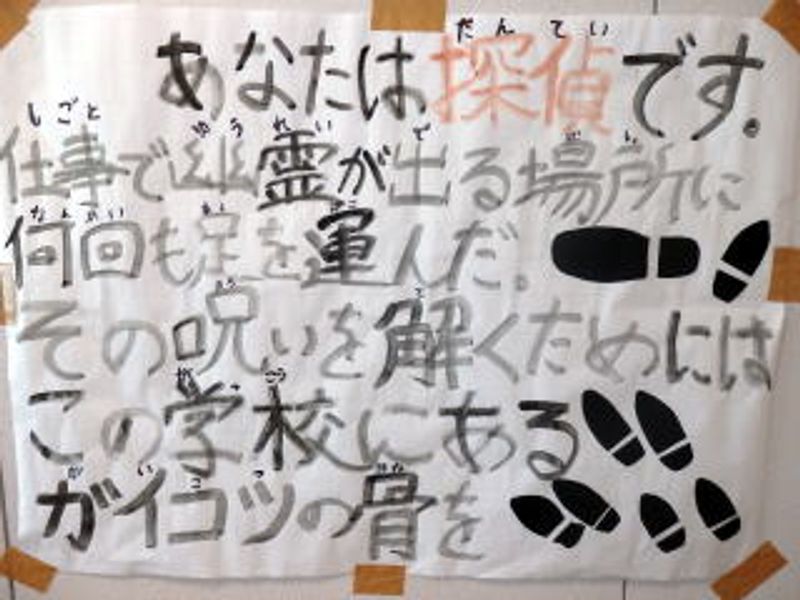 あなたは探偵です。
仕事で幽霊が出る場所に
何回も足を運んだ。
その呪いを解くためには
この学校にある
ガイコツの骨を